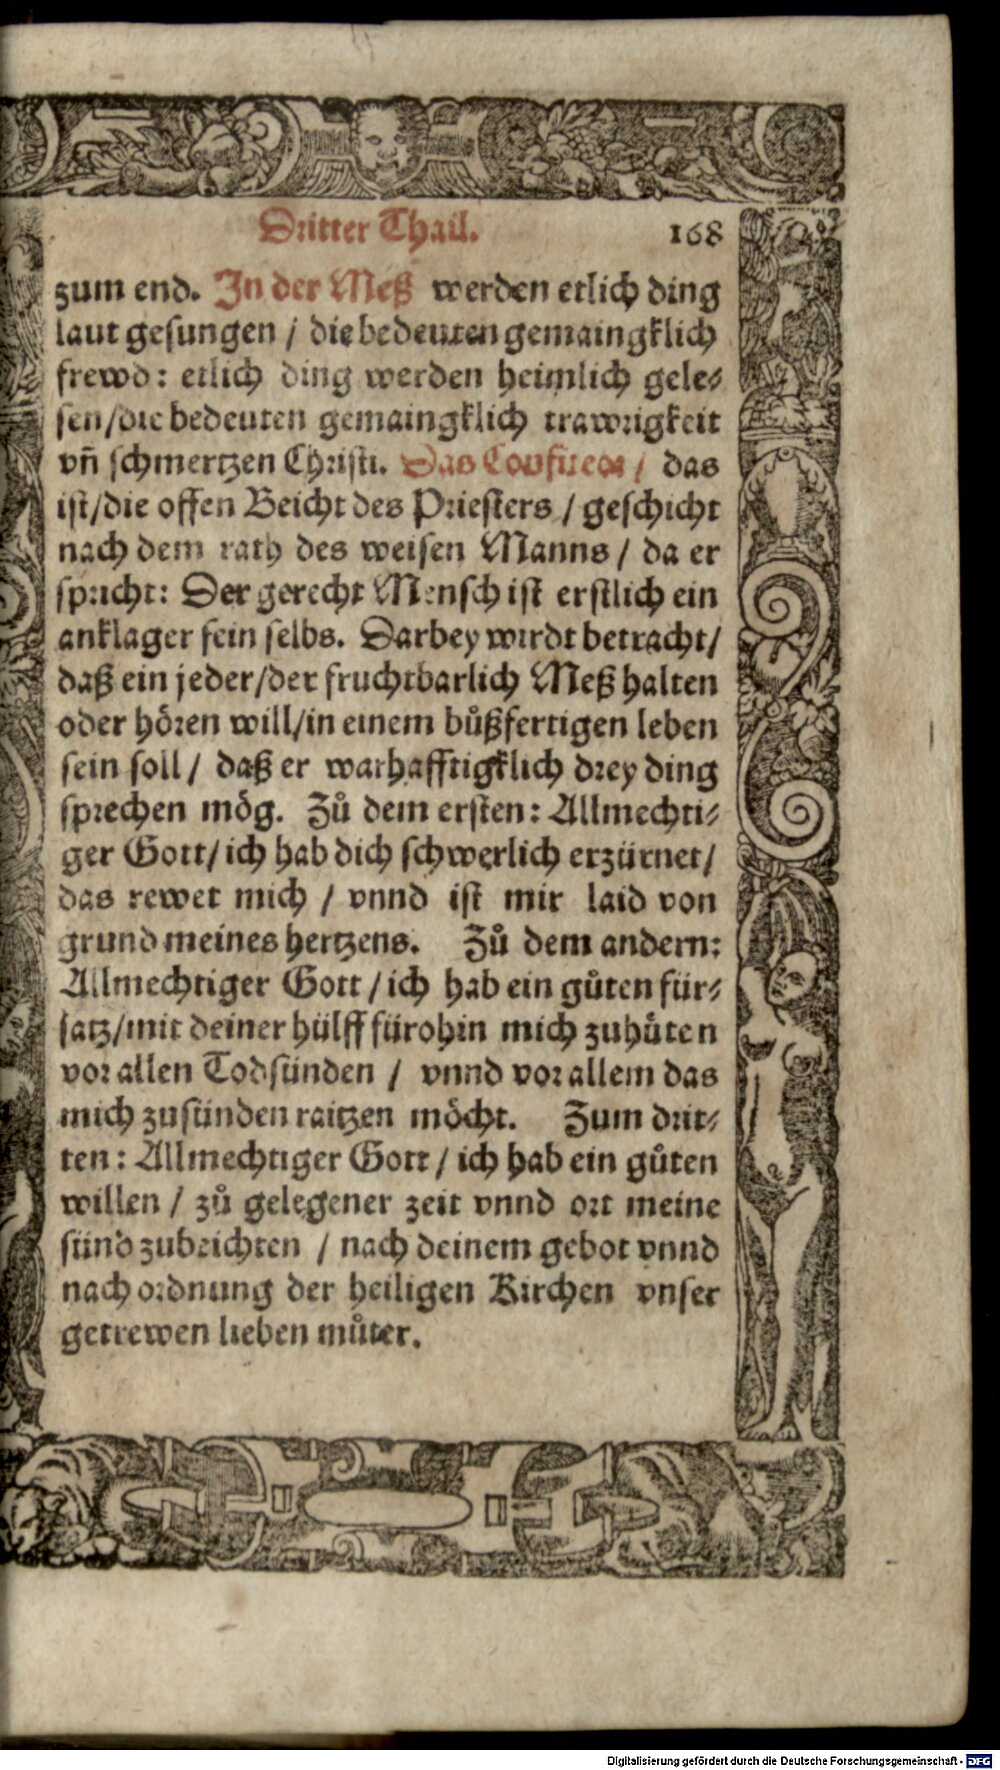 Dritter Thail. 168
zum end. In der Meß werden etlich ding
laut gesungen / die bedeuten gemaingklich
frewd: etlich ding werden heimlich gele⸗
sen/die bedeuten gemaingklich trawrigkeit
vñ schmertzen Christi. Das Confiteor / das
ist/die offen Beicht des Priesters / geschicht
nach dem rath des weisen Manns / da er
spricht: Der gerecht Mensch ist erstlich ein
anklager sein selbs. Darbey wirdt betracht/
daß ein jeder/der fruchtbarlich Meß halten
oder hören will/in einem bůßfertigen leben
sein soll / daß er warhafftigklich drey ding
sprechen mög. Zů dem ersten: Allmechti⸗
ger Gott/ ich hab dich schwerlich erzürnet/
das rewet mich / vnnd ist mir laid von
grund meines hertzens. Zů dem andern:
Allmechtiger Gott / ich hab ein gůten für⸗
satz/mit deiner hülff fürohin mich zuhůten
vor allen Todsünden / vnnd vor allem das
mich zusünden raitzen möcht. Zum drit⸗
ten: Allmechtiger Gott / ich hab ein gůten
willen / zů gelegener zeit vnnd ort meine
sünd zubeichten / nach deinem gebot vnnd
nach ordnung der heiligen Kirchen vnser
getrewen lieben můter.
Digitalisierung gefördert durch die Deutsche Forschungsgemeinschaft - DFG